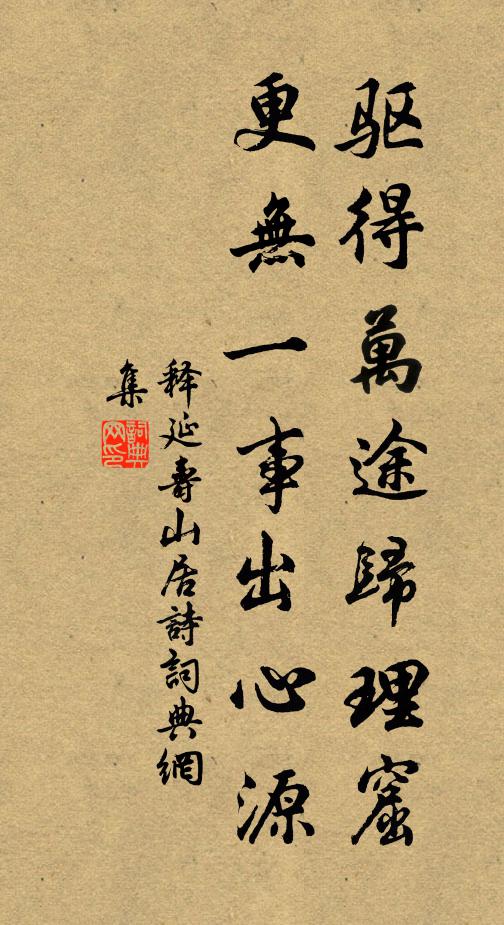 驱得萬途歸理窟
更無一事出心源
释延壽山居詩詞典網
集
詞典
网印